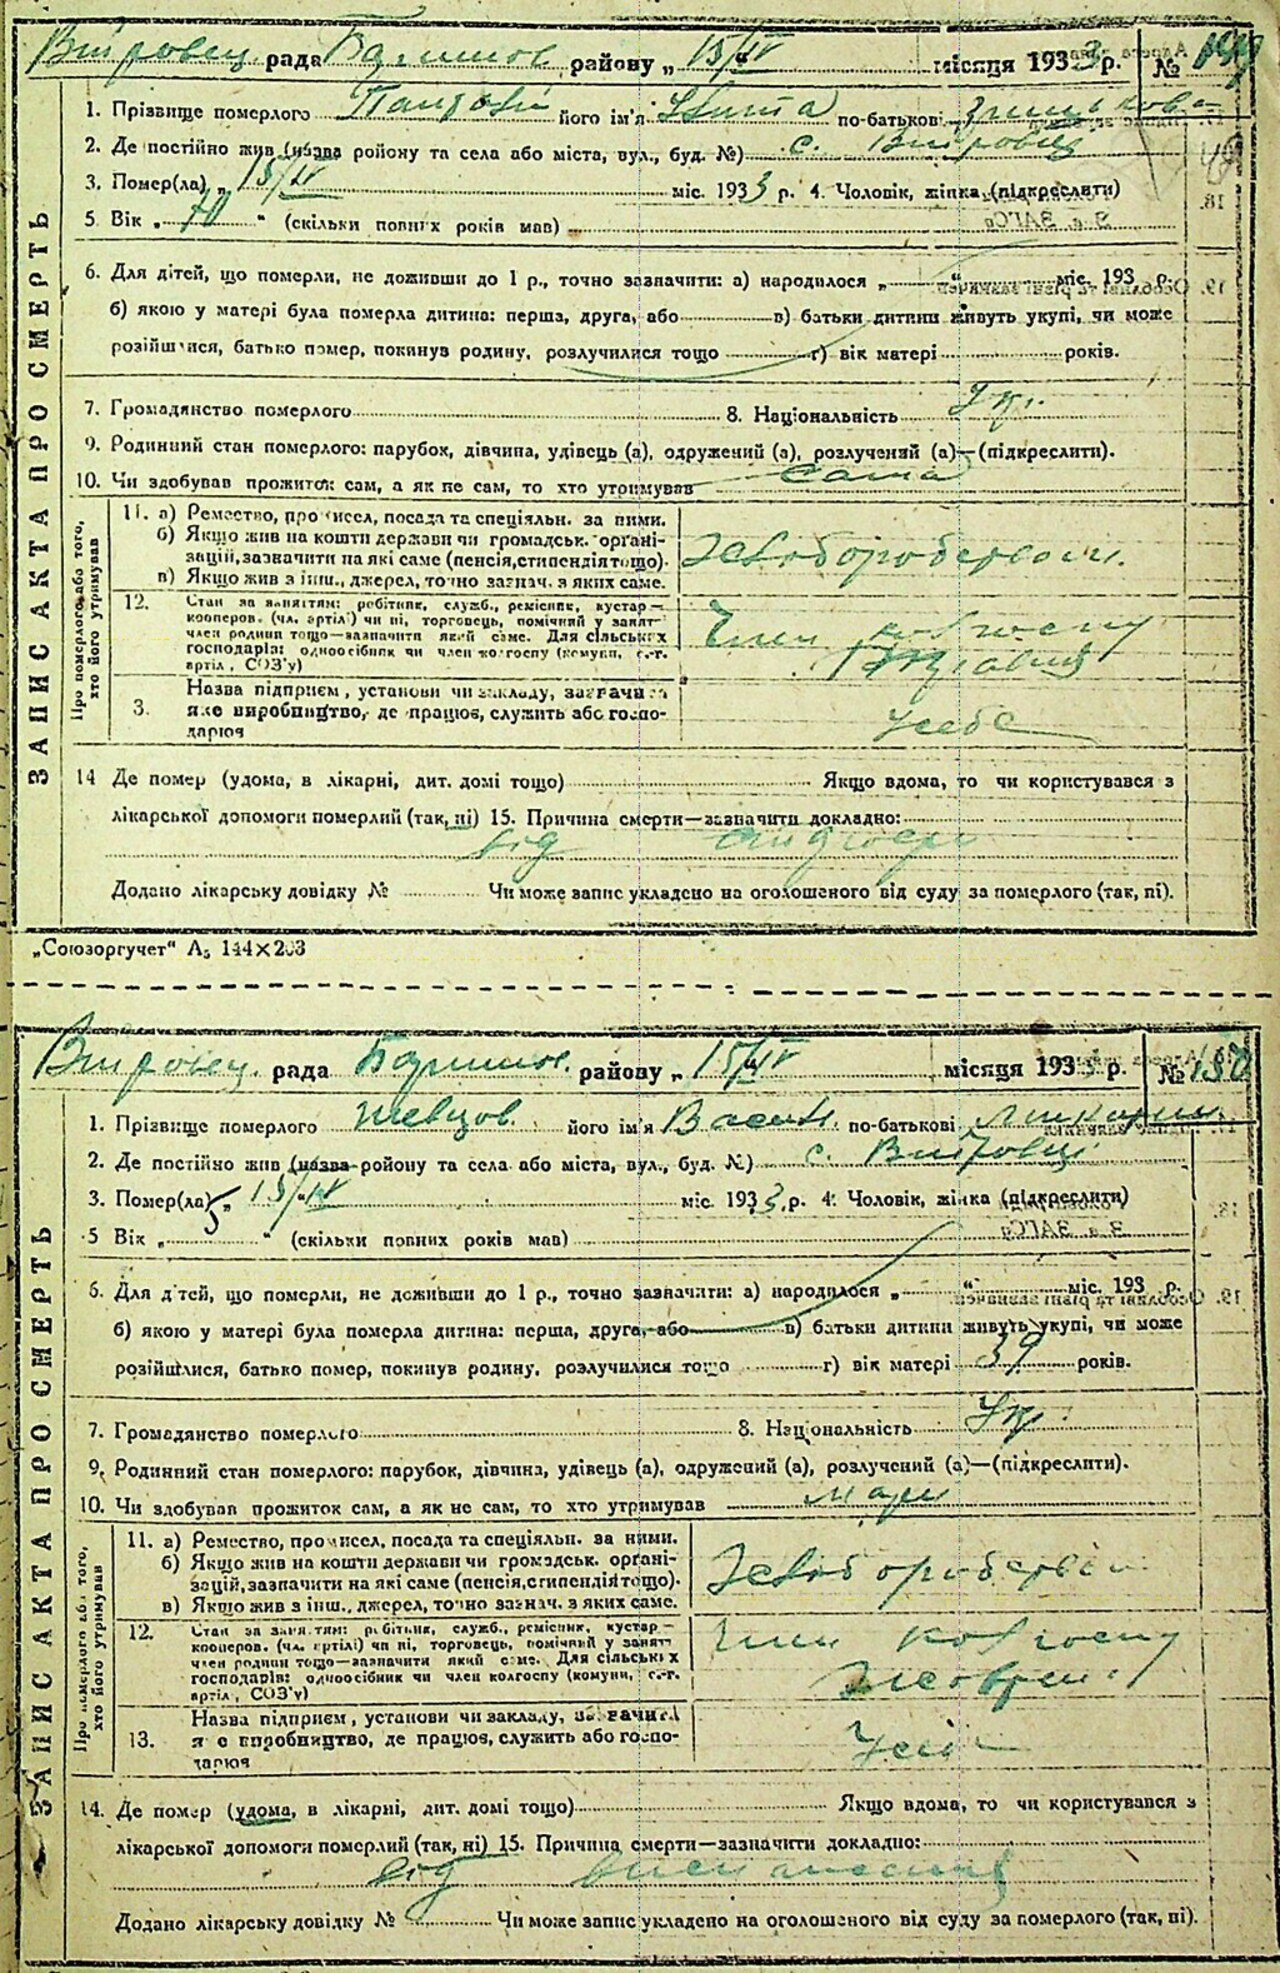 рада районy „ 15/IV місяця 1933 р. № 149
1. Прізвище померлого його ім'я по-батькові
2. Де постійно жив (назва ройону та села або міста, вул., буд. №) с.
3. Помер(ла) „ 15/IV міс. 1933 р. 4. Чоловік, жінка (підкреслити)
5 Вік „ 70 “ (скільки повних років мав)
6. Для дітей, що померли, не доживши до 1 р., точно зазначити: а) народилося „ “ міс. 193 р.
б) якою у матері була померла дитина: перша, друга, або в) батьки дитини живуть укупі, чи може
розійшлися, батько помер, покинув родину, розлучилися тощо г) вік матері років.
7. Громадянство померлого 8. Національність Укр.
9. Родинний стан померлого: парубок, дівчина, удівець (а), одружений (а), розлучений (а)—(підкреслити).
10. Чи здобував прожиток сам, а як не сам, то хто утримував сама
ЗАПИС АКТА ПРО СМЕРТЬ
Про померлого або того, хто його утримував
11. а) Ремество, промисел, посада та спеціяльн. за ними.
б) Якщо жив на кошти держави чи громадськ. органі-
зацій, зазначити на які саме (пенсія, стипендія тощо).
в) Якщо жив з інш., джерел, точно зазнач. з яких саме.
12. Стан за заняттям: робітник, служб., ремісник, кустар—
кооперов. (чл. артілі) чи ні, торговець, помічний у занят-
член родини тощо—зазначити який саме. Для сільських
господарів: одноосібник чи член колгоспу (комуни, с.-г.
артіл, СОЗ'у)
Член колгоспу
Назва підприєм, установи чи закладу, зазначити
3. яке виробництво, де працює, служить або госпо-
дарює
14 Де помер (удома, в лікарні, дит. домі тощо) Якщо вдома, то чи користувався з
лікарської допомоги померлий (так, ні) 15. Причина смерти—зазначити докладно:
від
Додано лікарську довідку № Чи може запис укладено на оголошеного від суду за померлого (так, ні).
„Союзоргучет“ А₅ 144×203
рада району „ 15/IV місяця 1933 р. № 150
1. Прізвище померлого Шевцов його ім'я Васи по-батькові
2. Де постійно жив (назва ройону та села або міста, вул., буд. №) с.
3. Помер(ла) „ 15/IV міс. 1933 р. 4. Чоловік, жінка (підкреслити)
5 Вік „ “ (скільки повних років мав)
6. Для дітей, що померли, не доживши до 1 р., точно зазначити: а) народилося „ “ міс. 193 р.
б) якою у матері була померла дитина: перша, друга, або в) батьки дитини живуть укупі, чи може
розійшлися, батько помер, покинув родину, розлучилися тощо г) вік матері 39 років.
7. Громадянство померлого 8. Національність Укр.
9. Родинний стан померлого: парубок, дівчина, удівець (а), одружений (а), розлучений (а)—(підкреслити).
10. Чи здобував прожиток сам, а як не сам, то хто утримував
ЗАПИС АКТА ПРО СМЕРТЬ
Про померлого або того, хто його утримував
11. а) Ремество, промисел, посада та спеціяльн. за ними.
б) Якщо жив на кошти держави чи громадськ. органі-
зацій, зазначити на які саме (пенсія, стипендія тощо).
в) Якщо жив з інш., джерел, точно зазнач. з яких саме.
12. Стан за заняттям: робітник, служб., ремісник, кустар—
кооперов. (чл. артілі) чи ні, торговець, помічний у занятт
член родини тощо—зазначити який саме. Для сільських
господарів: одноосібник чи член колгоспу (комуни, с.-г.
артіл, СОЗ'у)
Член колгоспу
Назва підприєм, установи чи закладу, зазначити
13. яке виробництво, де працює, служить або госпо-
дарює
14. Де помер (удома, в лікарні, дит. домі тощо) Якщо вдома, то чи користувався з
лікарської допомоги померлий (так, ні) 15. Причина смерти—зазначити докладно:
від
Додано лікарську довідку № Чи може запис укладено на оголошеного від суду за померлого (так, ні).